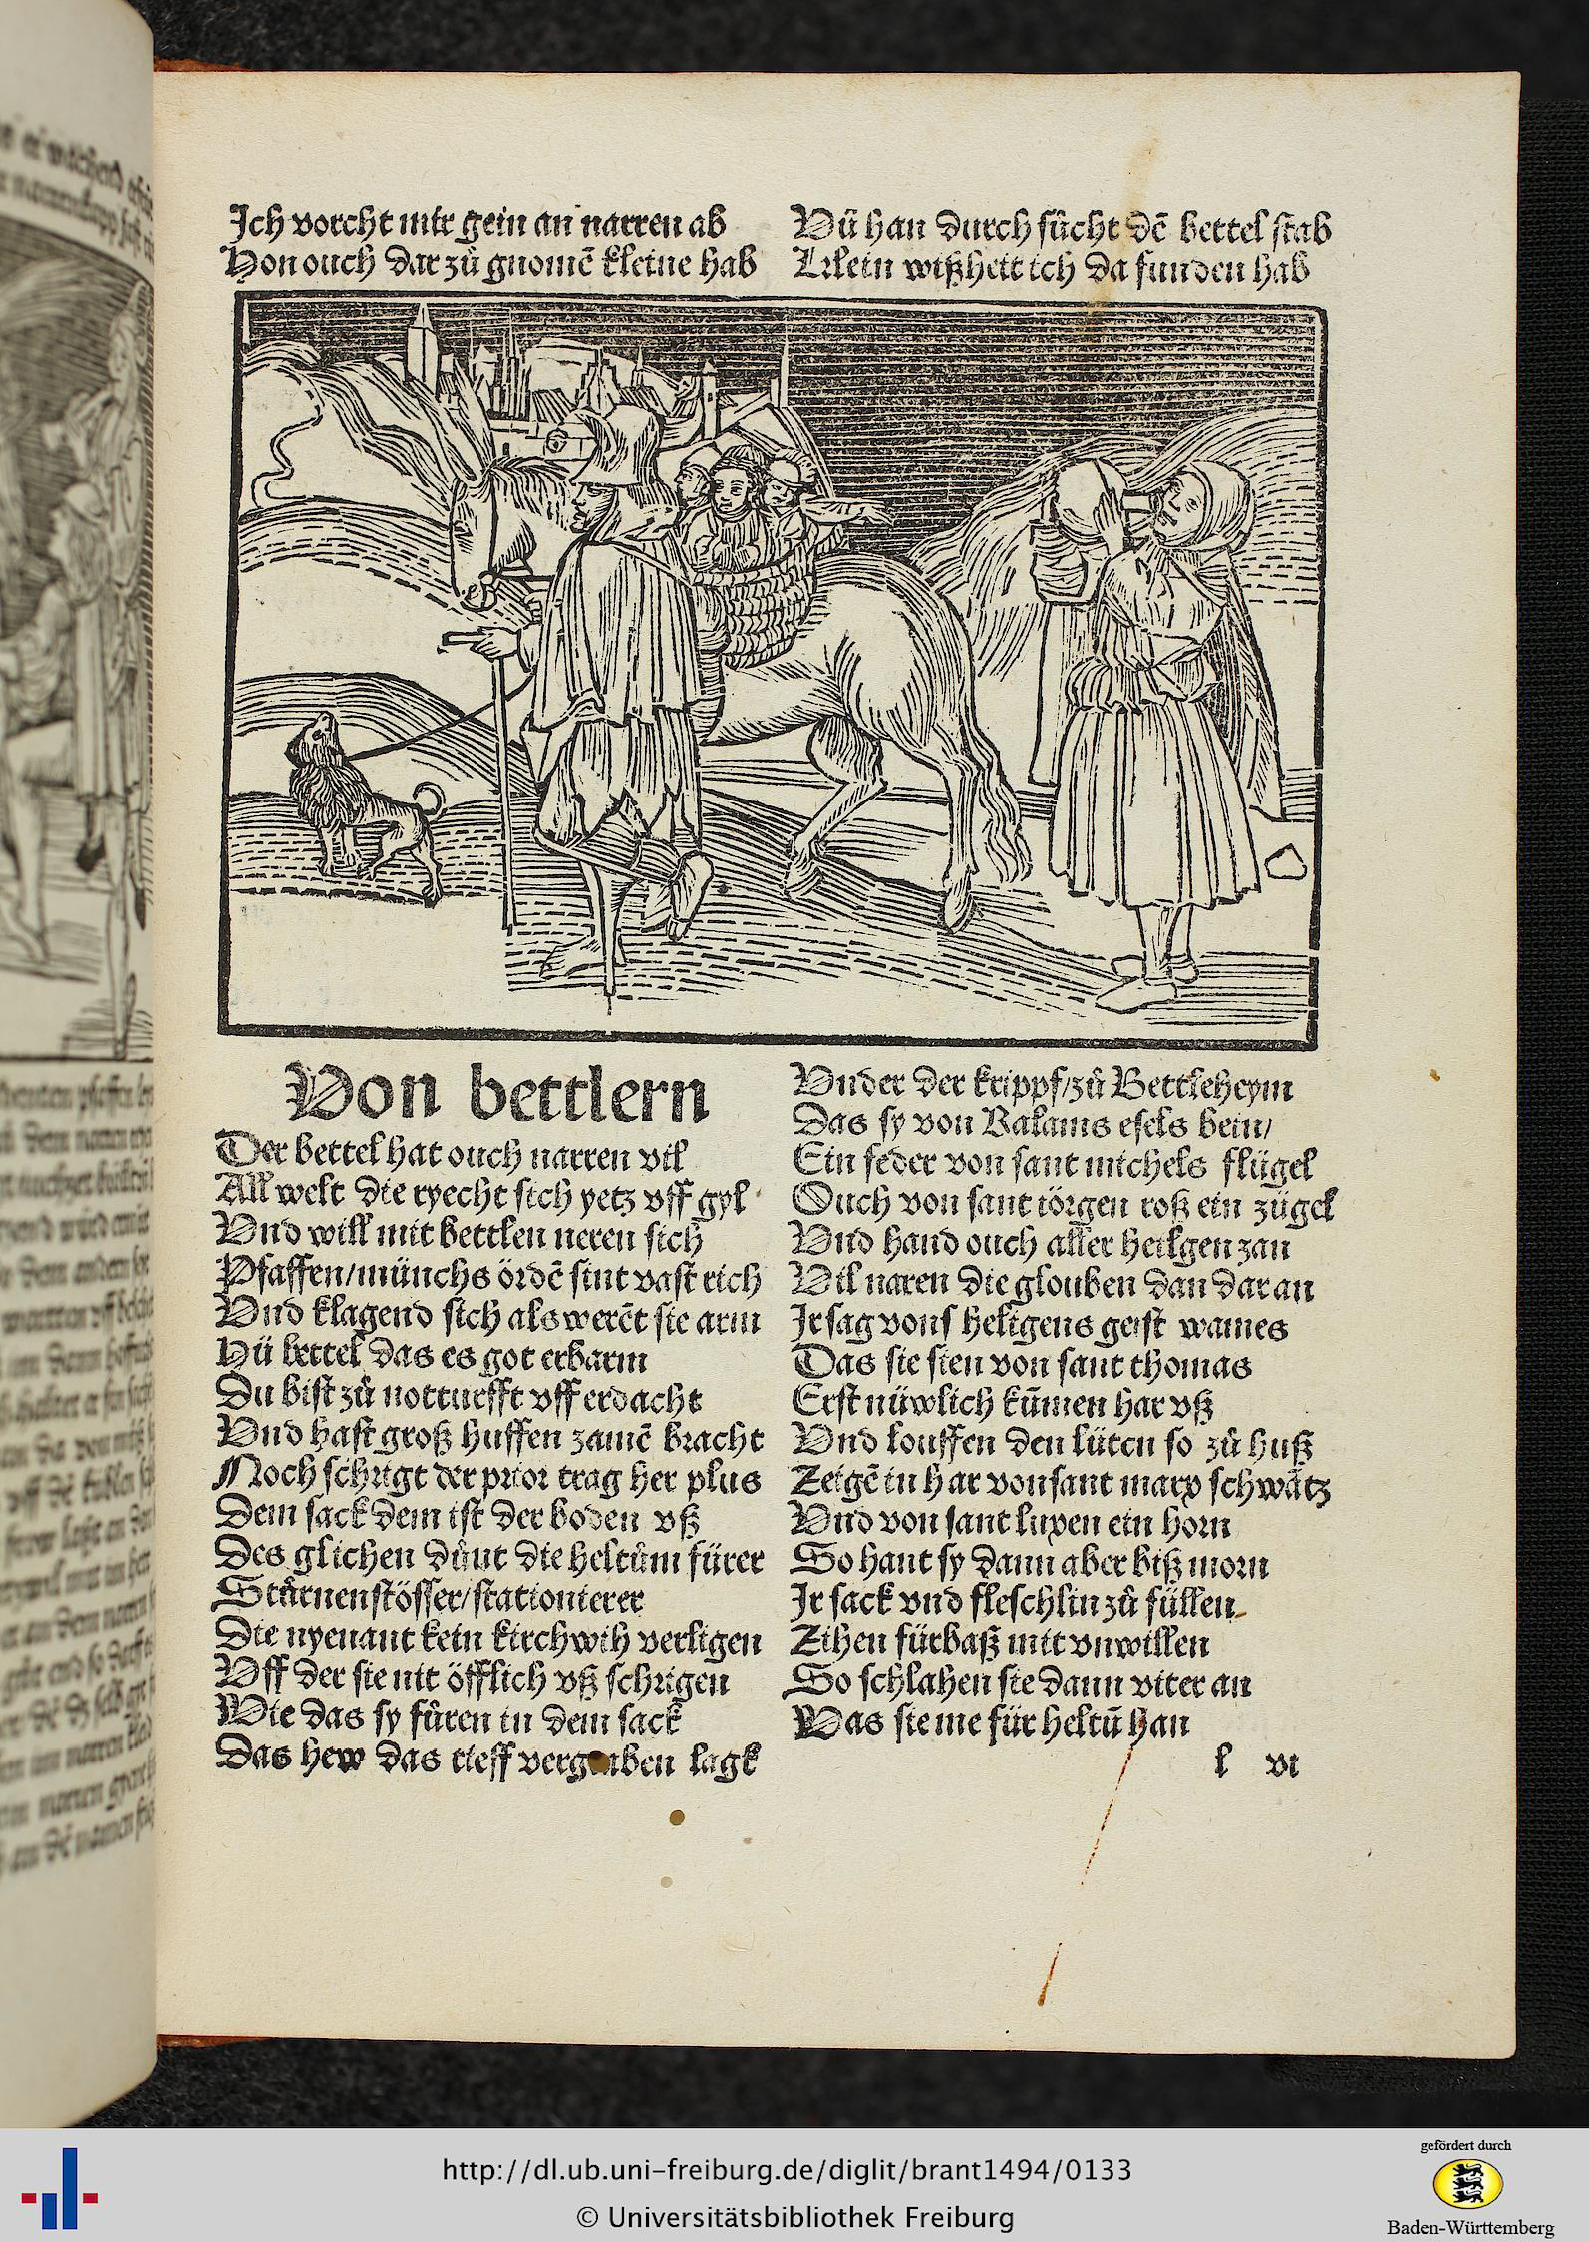 Ich vorcht mir gein an narren ab
Hon ouch dar zů gnomē kleine hab
Vü han durch sücht dē bettel stab
Klein wißheit ich da funden hab
Von bettlern
Der bettel hat ouch narren vil
All welt die ryecht sich yetz vff gyl
Vnd will mit bettlen neren sich
Pfaffen/münchs ördē sint vast rich
Vnd klagend sich als werēt sie arm
Hü bettel das es got erbarm
Du bist zů notturfft vff erdacht
Vnd hast groß huffen zamē bracht
Noch schrigt der prior trag her plus
Dem sack dem ist der boden vß
Des glichen důnt die heltům fürer
Stürnenstösser/stationierer
Die nyenant kein kirchwih verligen
Vff der sie nit öfflich vß schrigen
Wie das sy fůren in dem sack
Das hew das tieff vergraben lagk
Vnder der krippf/zů Bettleheym
Das sy von Balams esels bein/
Ein feder von sant michels flügel
Ouch von sant iörgen roß ein zügel
Vnd hand ouch aller heilgen zan
Vil naren die glouben dan dar an
Ir sag vons heligens geist wames
Das sie sien von sant thomas
Erst nüwlich kūmen har vß
Vnd louffen den lüten so zů huß
Zeigē in har von sant marx schwātz
Vnd von sant luxen ein horn
So hant sy dann aber biß morn
Ir sack vnd fleschlin zů füllen
Zihen fürbaß mit vnwillen
So schlahen sie dann viter an
Was sie me für heltū han
l vi
http://dl.ub.uni-freiburg.de/diglit/brant1494/0133
© Universitätsbibliothek Freiburg
gefördert durch
Baden-Württemberg